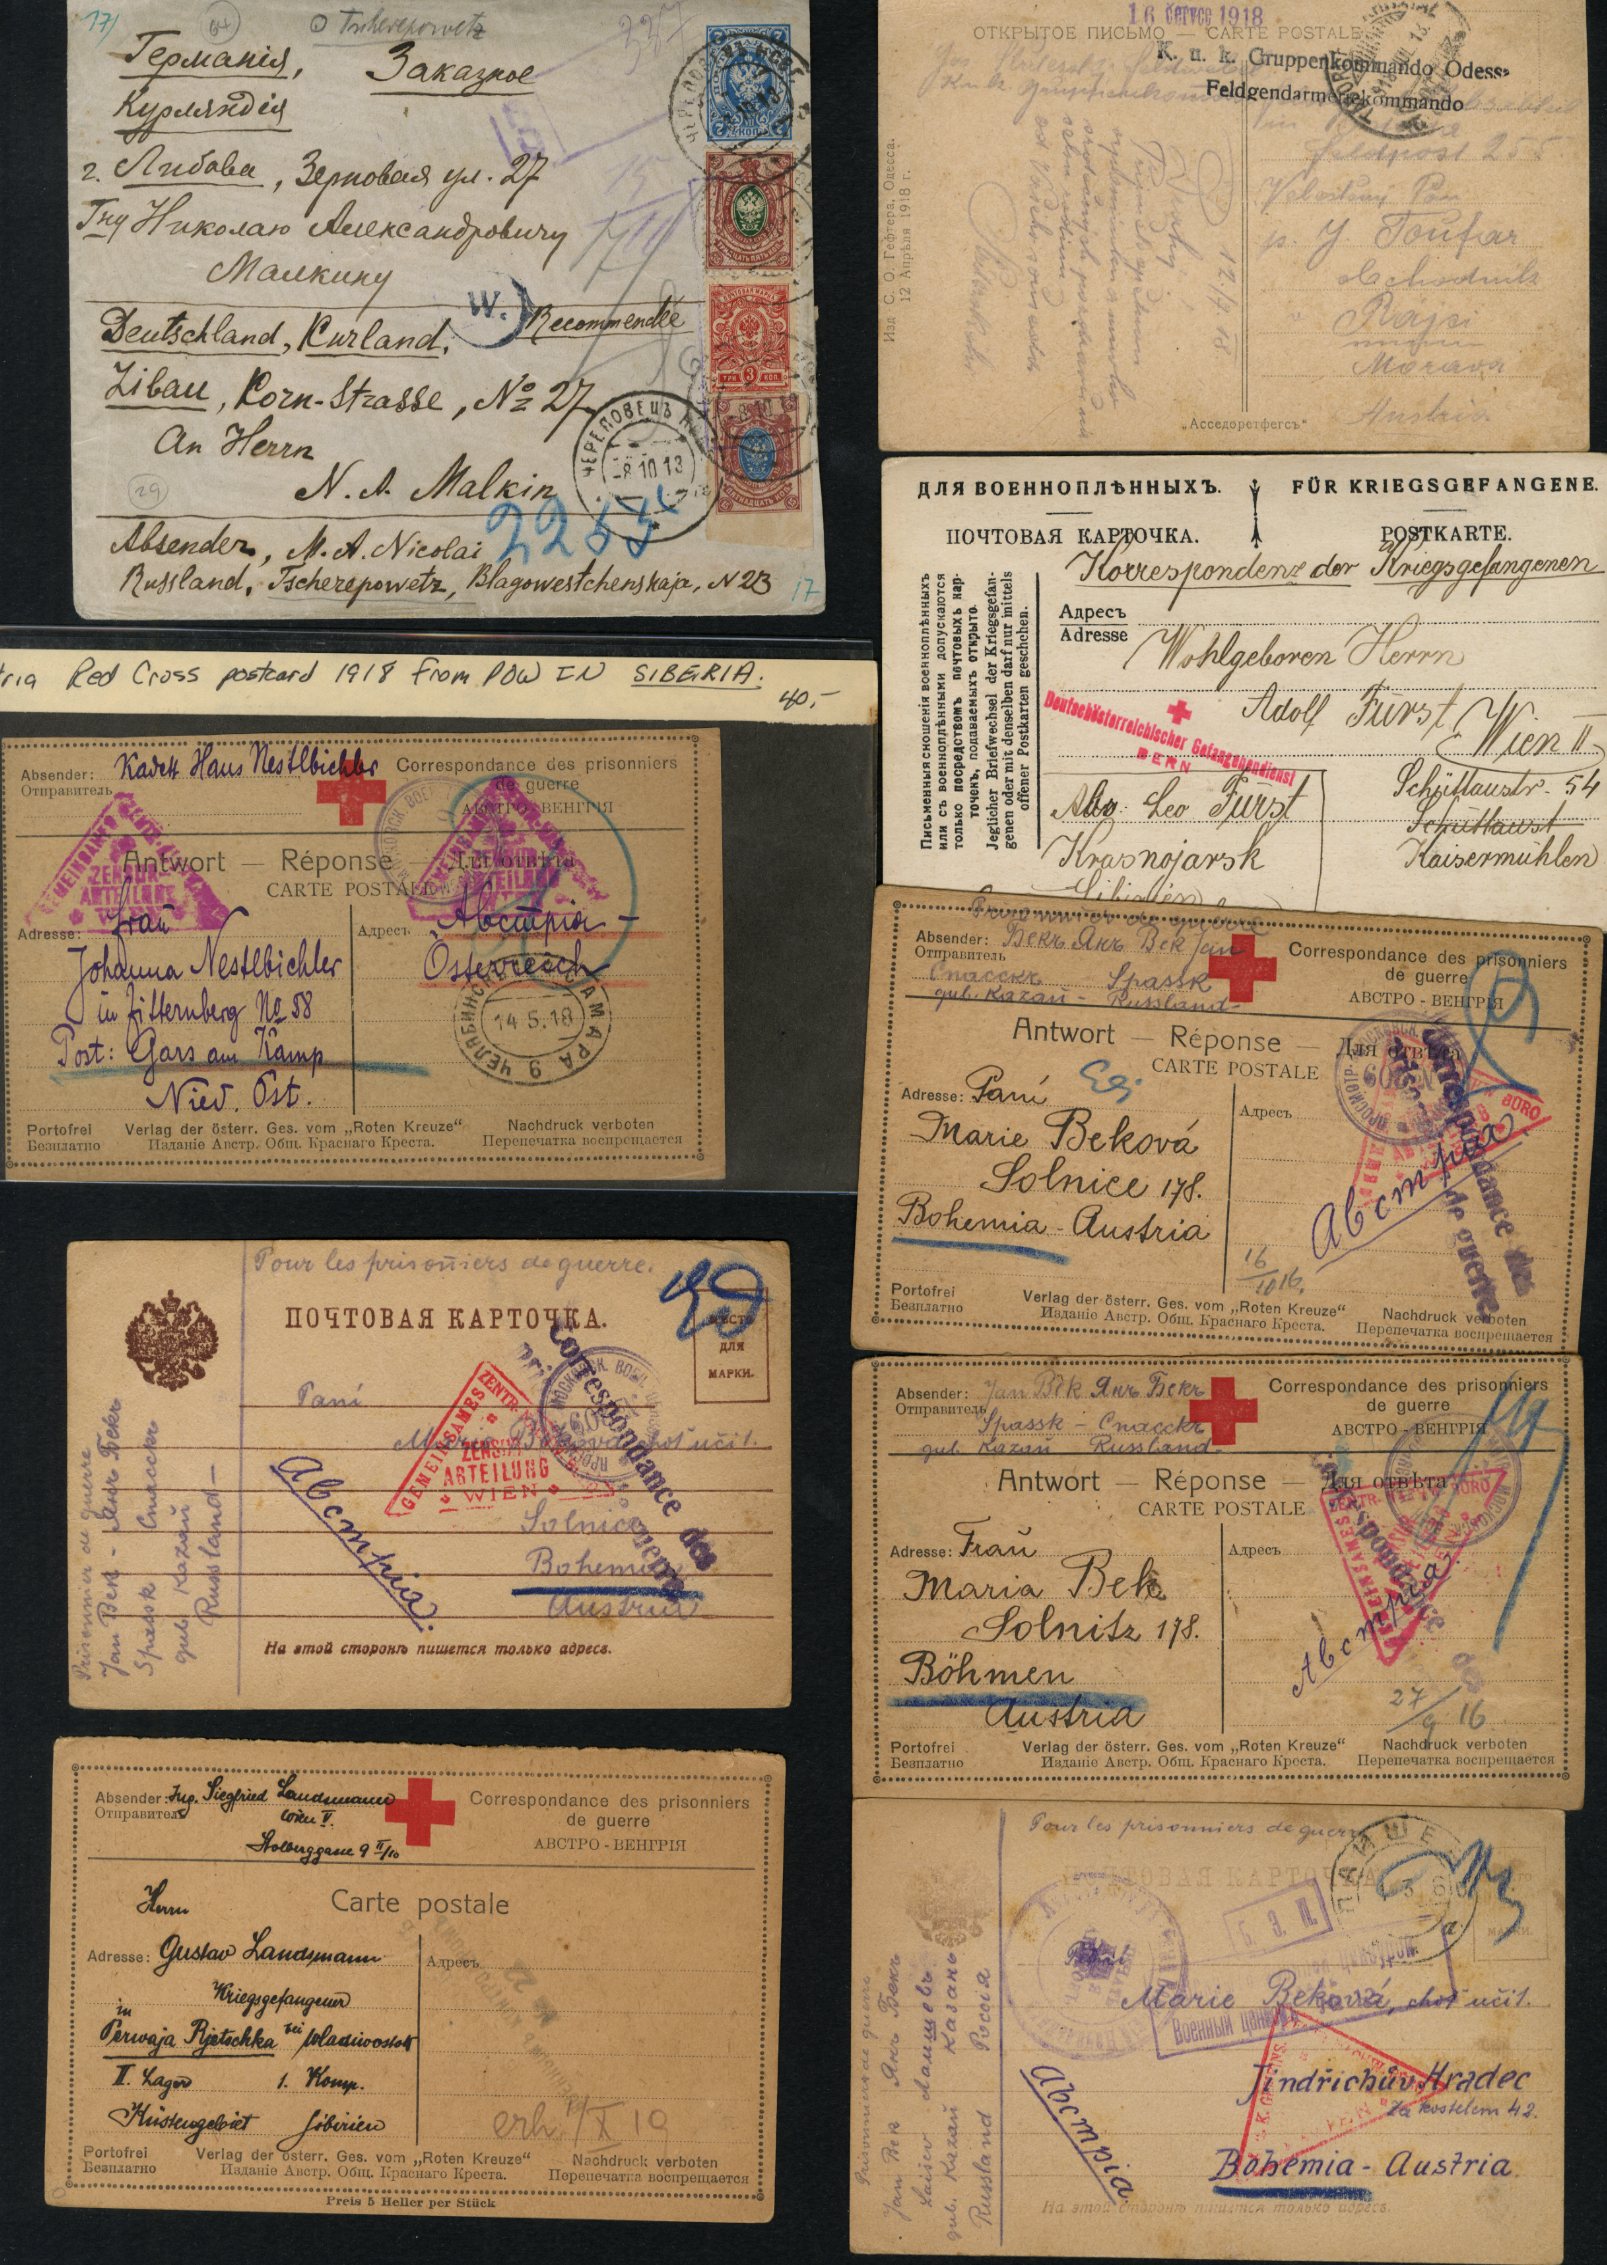 17
64
Tscherepowetz
337
Германія,
Заказное
Курляндія
г. Либава, Зерновая ул. 27
Гну Николаю Александровичу
Малкину
W.
Recommendée
Deutschland, Kurland,
Libau, Korn-Strasse, № 27
An Herrn
N. A. Malkin
29
2255
Absender, M. A. Nicolai
Russland, Tscherepowetz, Blagowestchenskaja, N 23
17
ЧЕРЕПОВЕЦЪ
-8 10 13
16 červce 1918
ОТКРЫТОЕ ПИСЬМО — CARTE POSTALE
K. u. k. Gruppenkommando Odessa
Feldgendarmeriekommando
Feldpost 255
Velectěný Pan
p. J. Toufar
obchodník
Morava
Austria
12/7 18
Изд. С. О. Гефтера, Одесса.
12 Апрѣля 1918 г.
„Асседоретфегсъ“
ДЛЯ ВОЕННОПЛѢННЫХЪ.
FÜR KRIEGSGEFANGENE.
ПОЧТОВАЯ КАРТОЧКА.
POSTKARTE.
Korrespondenz der Kriegsgefangenen
Адресъ
Adresse
Wohlgeboren Herrn
Adolf Fürst
Wien II
Schüttaustr. 54
Schüttaust
Kaisermühlen
Deutschösterreichischer Gefangenendienst
BERN
Abs. Leo Fürst
Krasnojarsk
Sibirien
Письменныя сношенія военноплѣнныхъ
или съ военноплѣнными допускаются
только посредствомъ почтовыхъ кар-
точекъ, подаваемыхъ открыто.
Jeglicher Briefwechsel der Kriegsgefan-
genen oder mit denselben darf nur mittels
offener Postkarten geschehen.
tria Red Cross postcard 1918 from POW IN SIBERIA.
40,-
Absender: Kadett Hans Nestlbichler
Отправитель
Correspondance des prisonniers
de guerre
АВСТРО-ВЕНГРІЯ
Antwort — Réponse — Для отвѣта
CARTE POSTALE
GEMEINSAMES ZENTR.
ZENSUR
ABTEILUNG
WIEN
Adresse: Frau
Johanna Nestlbichler
in Zitternberg № 58
Post: Gars am Kamp
Nied. Öst.
Адресъ
Австрія -
Österreich
ЧЕЛЯБИНСКЪ САМАРА 9
14 5.18
Portofrei
Безплатно
Verlag der österr. Ges. vom „Roten Kreuze“
Изданіе Австр. Общ. Краснаго Креста.
Nachdruck verboten
Перепечатка воспрещается
Prisonnier de guerre
Absender: Бекъ Янъ Bek Jan
Отправитель
Спасскъ Spassk
gub. Kazań - Russland -
Correspondance des prisonniers
de guerre
АВСТРО-ВЕНГРІЯ
Antwort — Réponse — Для отвѣта
CARTE POSTALE
Adresse: Paní
Marie Beková
Solnice 178.
Bohemia - Austria
Адресъ
Correspondance des
de guerre
Австрія
16/10 16.
Portofrei
Безплатно
Verlag der österr. Ges. vom „Roten Kreuze“
Изданіе Австр. Общ. Краснаго Креста.
Nachdruck verboten
Перепечатка воспрещается
Pour les prisonniers de guerre.
ПОЧТОВАЯ КАРТОЧКА.
МѢСТО
ДЛЯ
МАРКИ.
Paní
Marie Beková choť učit.
Solnice
Bohemia
Austria
Австрія.
Correspondance des
GEMEINSAMES ZENTR.
ZENSUR
ABTEILUNG
WIEN
Prisonnier de guerre
Jan Bek - Янъ Бекъ
Spassk Спасскъ
gub. Kazań
Russland -
На этой сторонѣ пишется только адресъ.
Absender: Jan Bek Янъ Бекъ
Отправитель
Spassk - Спасскъ
gub. Kazań Russland -
Correspondance des prisonniers
de guerre
АВСТРО-ВЕНГРІЯ
Antwort — Réponse — Для отвѣта
CARTE POSTALE
Adresse: Frau
Maria Bek
Solnitz 178.
Böhmen
Austria
Адресъ
Correspondance des
Австрія.
27/9 16
Portofrei
Безплатно
Verlag der österr. Ges. vom „Roten Kreuze“
Изданіе Австр. Общ. Краснаго Креста.
Nachdruck verboten
Перепечатка воспрещается
Absender: Ing. Siegfried Landsmann
Отправитель
Wien V.
Stolberggasse 9 II/10
Correspondance des prisonniers
de guerre
АВСТРО-ВЕНГРІЯ
Carte postale
Herrn
Adresse: Gustav Landsmann
Kriegsgefangener
in
Perwaja Rjetschka bei Wladiwostok
II. Lager 1. Komp.
Küstengebiet Sibirien
Адресъ
erh. /X 19
Portofrei
Безплатно
Verlag der österr. Ges. vom „Roten Kreuze“
Изданіе Австр. Общ. Краснаго Креста.
Nachdruck verboten
Перепечатка воспрещается
Preis 5 Heller per Stück
Pour les prisonniers de guerre
ПОЧТОВАЯ КАРТОЧКА
ЛАИШЕВ
Г. Э. П.
Paní
Marie Beková, choť učit.
Военный цензоръ
Jindřichův Hradec
Za kostelem 42.
Bohemia - Austria.
Австрія
Prisonnier de guerre
Jan Bek Янъ Бекъ
Laišev Лаишевъ
gub. Kazań Казань
Russland Россія
На этой сторонѣ пишется только адресъ.